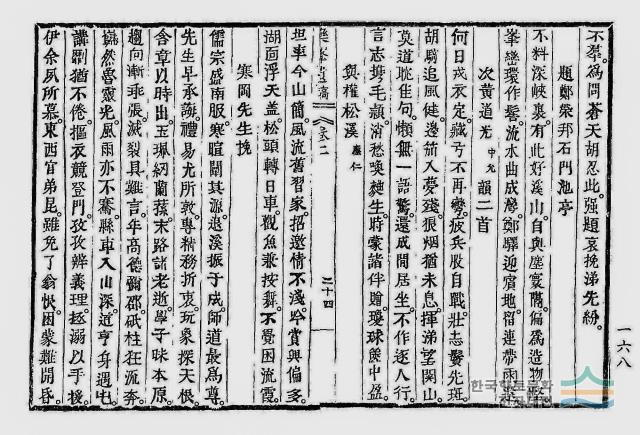 不羣。爲問蒼天胡忍此。强題哀挽涕先紛。
題鄭榮邦石門池亭
不料深峽裏。有此好溪山。自與塵寰隔。偏爲造物
巒環作髻。流水曲成灣。鄭驛迎賓地。留連帶雨
次黃道光 中允 韻二首
何日戎衣定。藏弓不再彎。疲兵股自戰。壯志鬢先斑。
胡騎追風健。邊笳入夢殘。狼烟猶未息。揮涕望關山。
莫道耽佳句。懶無一語驚。還成閒居坐。不作逐人行。
言志憑毛穎。消愁喚麴生。時蒙諧伴贈。瓊球篋中盈。
與權松溪 應仁
坦率今山簡。風流舊習家。招邀情不淺。吟賞興偏多。
湖面浮天盖。松頭轉日車。觀魚兼按舞。不覺困流霞。
寒岡先生挽
儒宗盛南服。寒暄闢其派。退溪振于成。師道最爲尊
先生早承誨。禮易尤所敦。專精務折衷。玩象探天根。
含章以時出。玉珮紉蘭蓀。末路諸老逝。學子味本原。
趨向漸乖張。滅裂具難言。年高德彌邵。砥柱狂流奔。
巋然魯靈光。風雨亦不騫。縣車入山深。道亨身遇屯。
講劘猶不倦。摳衣競登門。孜孜辨義理。拯溺以手援
伊余夙所慕。東西官弟昆。雖免了翁恨。困蒙難開昏。
卷二
二十四
一六八
한국학호남문화